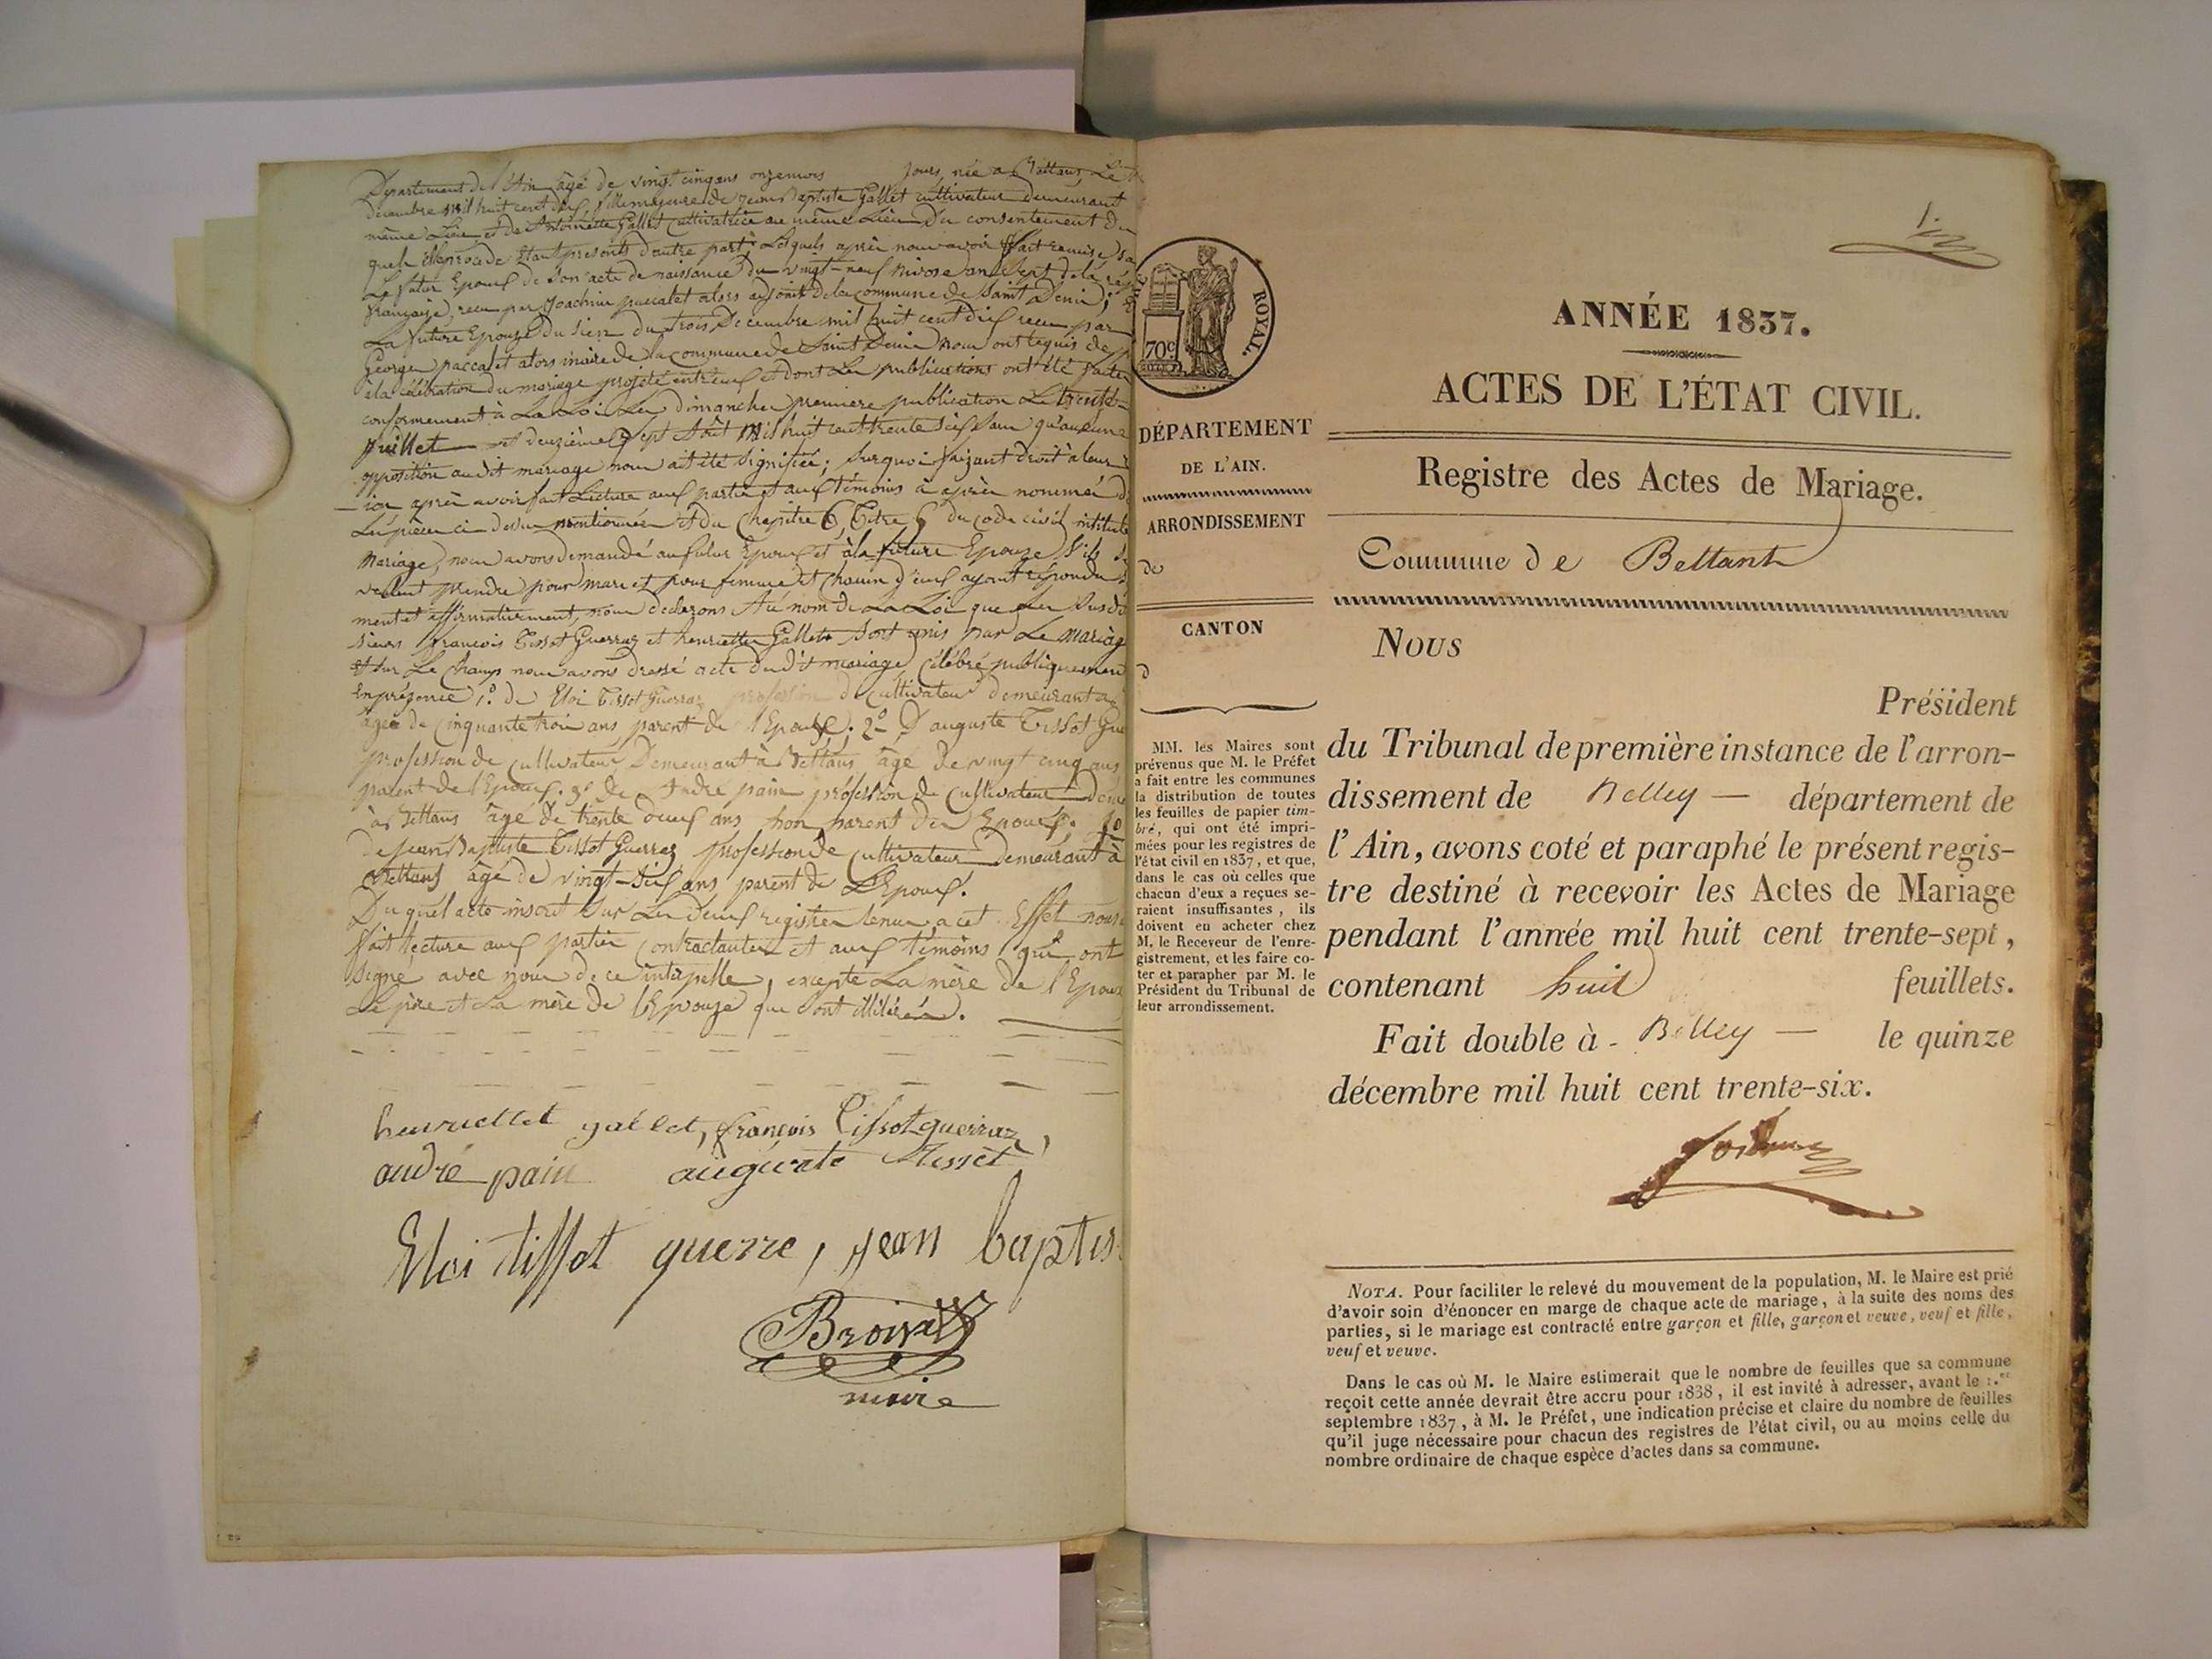 Département de l'Ain âgé de vingt cinq ans onze mois jours, née a Bettans, Le
décembre mil huit cent dix, fille majeure de jean Baptiste Gallet cultivateur demeurant
même Lieu et de Antoinette Gallet cultivatrice au même Lieu Du consentement de
procède étant présents d'autre part; Lesquels après nous avoir fait remise, sa
Le futur Epoux de son acte de naissance du vingt-neuf nivose an Sept de la ré
française, reçu par Joachim paccalet alors adjoint de la commune de Saint Denis;
La future Epouze du sien du trois Decembre mil huit cent dix reçu par
George paccalet alors maire de la commune de Saint Denis nous ont requis de p
à la célébration du mariage projeté entr'eux et dont Les publications ont été faites
conformement à La Loi Les Dimanches premiere publication Le trente-
juillet et deuzième sept Août mil huit cent trente six sans qu'aucune
opposition audit mariage nous ait été signifiée; surquoi faizant droit à leur
-ion après avoir fait Lecture aux parties et aux témoins ci après nommés d
Les pièces ci-dessus mentionnées et du Chapitre 6 Titre 5 du code civil intitulé
Mariage, nous avons demandé au futur Epoux et à la future Epouze s'ils
veulent prendre pour mari et pour femme et chacun d'eux ayant répondu
ment et affirmativement, nous declarons Au nom de La Loi que Les susdi
sieurs françois Tissot Guerraz et henriette Gallet sont unis par Le mariage
et sur Le champs nous avons dressé acte dudit mariage, célébré publiquement
En présence 1.° de Eloi Tissot Guerraz profession de cultivateur demeurant a
âgée de cinquante trois ans parent de l'Epoux; 2° D'auguste Tissot Gue
profession de cultivateur Demeurant à Bettans âgé de vingt cinq ans
parent de l'Epoux. 3° de André pain profession de cultivateur deme
à Bettans âgé de trente deux ans non parent des Epoux; 4°
de jean Baptiste Tissot Guerraz profession de cultivateur Demeurant à
Bettans âgé de vingt-six ans parent de L'Epoux.
Duquel acte inscrit sur Les deux registres tenus a cet Effet nous
fait lecture aux parties contractantes et aux témoins qui ont
signé avec nous de ce interpellé, excepté La mère de l'Epoux
Le père et La mère de l'Epouze que sont illitérés.
henriettet gallet, françois Tissotguerraz,
andré pain auguste Tissot
Eloi tissot guerre, jean baptis
Broi
maire
1.
ROYAL.
70 c
ANNÉE 1837.
ACTES DE L'ÉTAT CIVIL.
Registre des Actes de Mariage.
Commune de Bettant
DÉPARTEMENT
DE L'AIN.
ARRONDISSEMENT
de
CANTON
d
MM. les Maires sont
prévenus que M. le Préfet
a fait entre les communes
la distribution de toutes
les feuilles de papier tim-
bré, qui ont été impri-
mées pour les registres de
l'état civil en 1837, et que,
dans le cas où celles que
chacun d'eux a reçues se-
raient insuffisantes, ils
doivent en acheter chez
M. le Receveur de l'enre-
gistrement, et les faire co-
ter et parapher par M. le
Président du Tribunal de
leur arrondissement.
Nous
Président
du Tribunal de première instance de l'arron-
dissement de Belley — département de
l'Ain, avons coté et paraphé le présent regis-
tre destiné à recevoir les Actes de Mariage
pendant l'année mil huit cent trente-sept,
contenant huit feuillets.
Fait double à - Belley — le quinze
décembre mil huit cent trente-six.
NOTA. Pour faciliter le relevé du mouvement de la population, M. le Maire est prié
d'avoir soin d'énoncer en marge de chaque acte de mariage, à la suite des noms des
parties, si le mariage est contracté entre garçon et fille, garçon et veuve, veuf et fille,
veuf et veuve.
Dans le cas où M. le Maire estimerait que le nombre de feuilles que sa commune
reçoit cette année devrait être accru pour 1838, il est invité à adresser, avant le 1.er
septembre 1837, à M. le Préfet, une indication précise et claire du nombre de feuilles
qu'il juge nécessaire pour chacun des registres de l'état civil, ou au moins celle du
nombre ordinaire de chaque espèce d'actes dans sa commune.